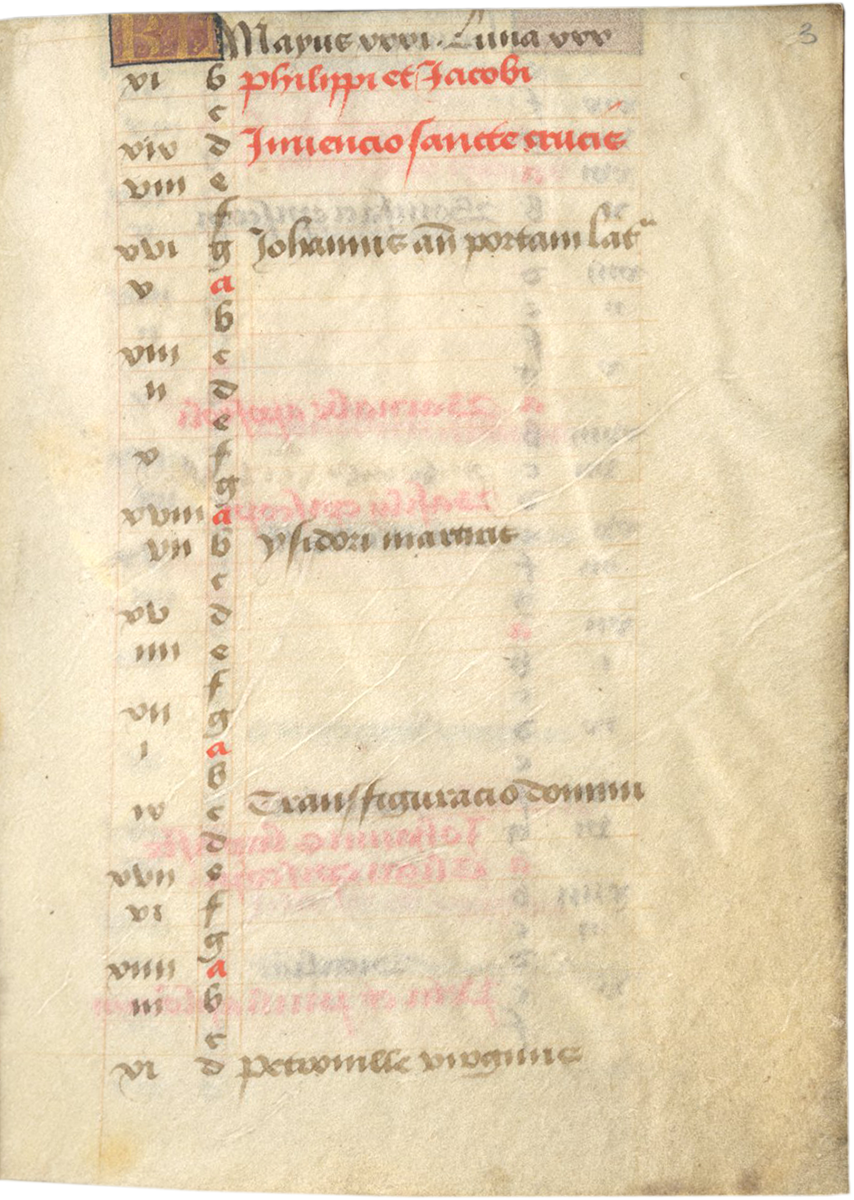 3
KL Mayus xxxi. Luna xxx
xi b Philippi et Jacobi
c
xix d Inuencio sancte crucis
viii e
f
xvi g Johannis an̄ portam lat
v a
b
xiii c
ii d
e
x f
g
xviii a
vii b ysidori martiris
c
xv d
iiii e
f
xii g
i a
b
ix c Transfiguracio domini
d
xvii e
vi f
g
xiiii a
iii b
c
xi d Petronille virginis